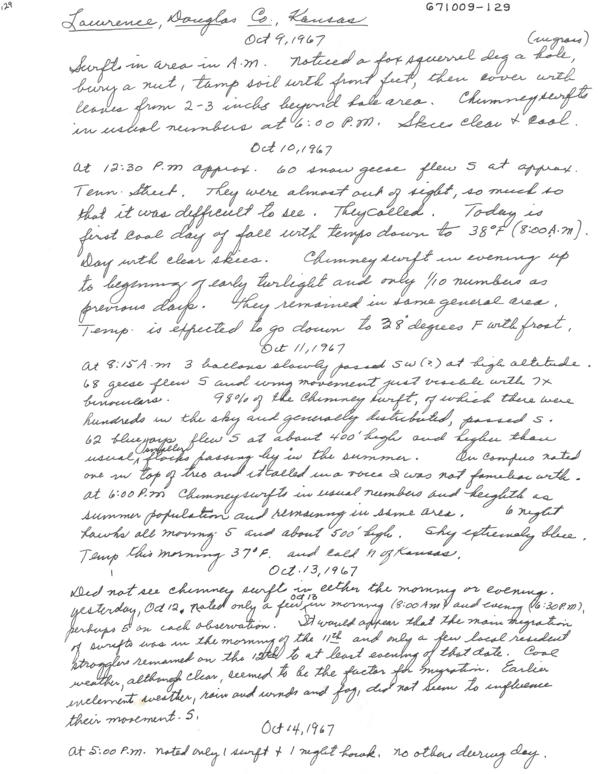 129
Lawrence, Douglas Co., Kansas
671009-129
Oct 9, 1967
Swifts in area in A.M. Noticed a fox squirrel dig a hole,
bury a nut, tamp soil with front feet, then cover with
leaves from 2-3 inchs beyond hole area. Chimney swifts
in usual numbers at 6:00 P.M. Skies clear & cool.
Oct 10, 1967
At 12:30 P.m approx. 60 snow geese flew S at approx.
Tenn. Street. They were almost out of sight, so much so
that it was difficult to see. They called. Today is
first cool day of fall with temps down to 38°F (8:00 A.M).
Day with clear skies. Chimney swift in evening up
to beginning of early twilight and only 1/10 numbers as
previous days. They remained in same general area.
Temp. is expected to go down to 28° degrees F with frost.
Oct 11, 1967
At 8:15 A.m 3 baloons slowly passed SW (?) at high altetude.
68 geese flew S and wing movement just viscable with 7x
binoculars. 98% of the Chimney swift, of which there were
hundreds in the sky and generally distributed, passed S.
62 bluejays flew S at about 400' high and higher than
usual smaller flocks passing by in the summer. On campus noted
one in top of tree and it called in a voice I was not familiar with.
At 6:00 P.m Chimney swifts in usual numbers and heighth as
summer population and remaining in same area. 6 night
hawks all moving S and about 500' high. Sky extremely blue.
Temp this morning 37°F. and cold N of Kansas.
Oct. 13, 1967
Did not see chimney swift in either the morning or evening. Oct 13
Yesterday, Oct 12, noted only a few in morning (8:00 Am) and evening (6:30 P.M),
perhaps 5 on each observation. It would appear that the main migration
of swifts was in the morning of the 11th and only a few local resident
stragglers remained on the 12th to at least evening of that date. Cool
weather, although clear, seemed to be the factor for migration. Earlier
inclement weather, rain and winds and fog, did not seem to influence
their movement S.
Oct 14, 1967
At 5:00 P.M. noted only 1 swift & 1 night hawk. No others during day.